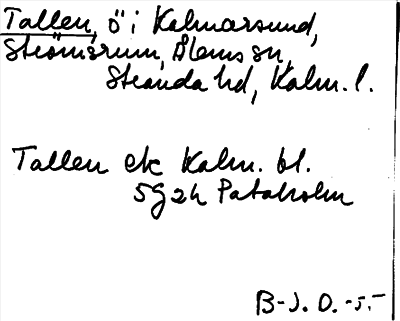 Tallen, ö i Kalmarsund,
Strömsrum, Ålems sn,
Stranda hd, Kalm. l.
Tallen ek Kalm. bl.
5g2h Pataholm
B-J. O. -5.-